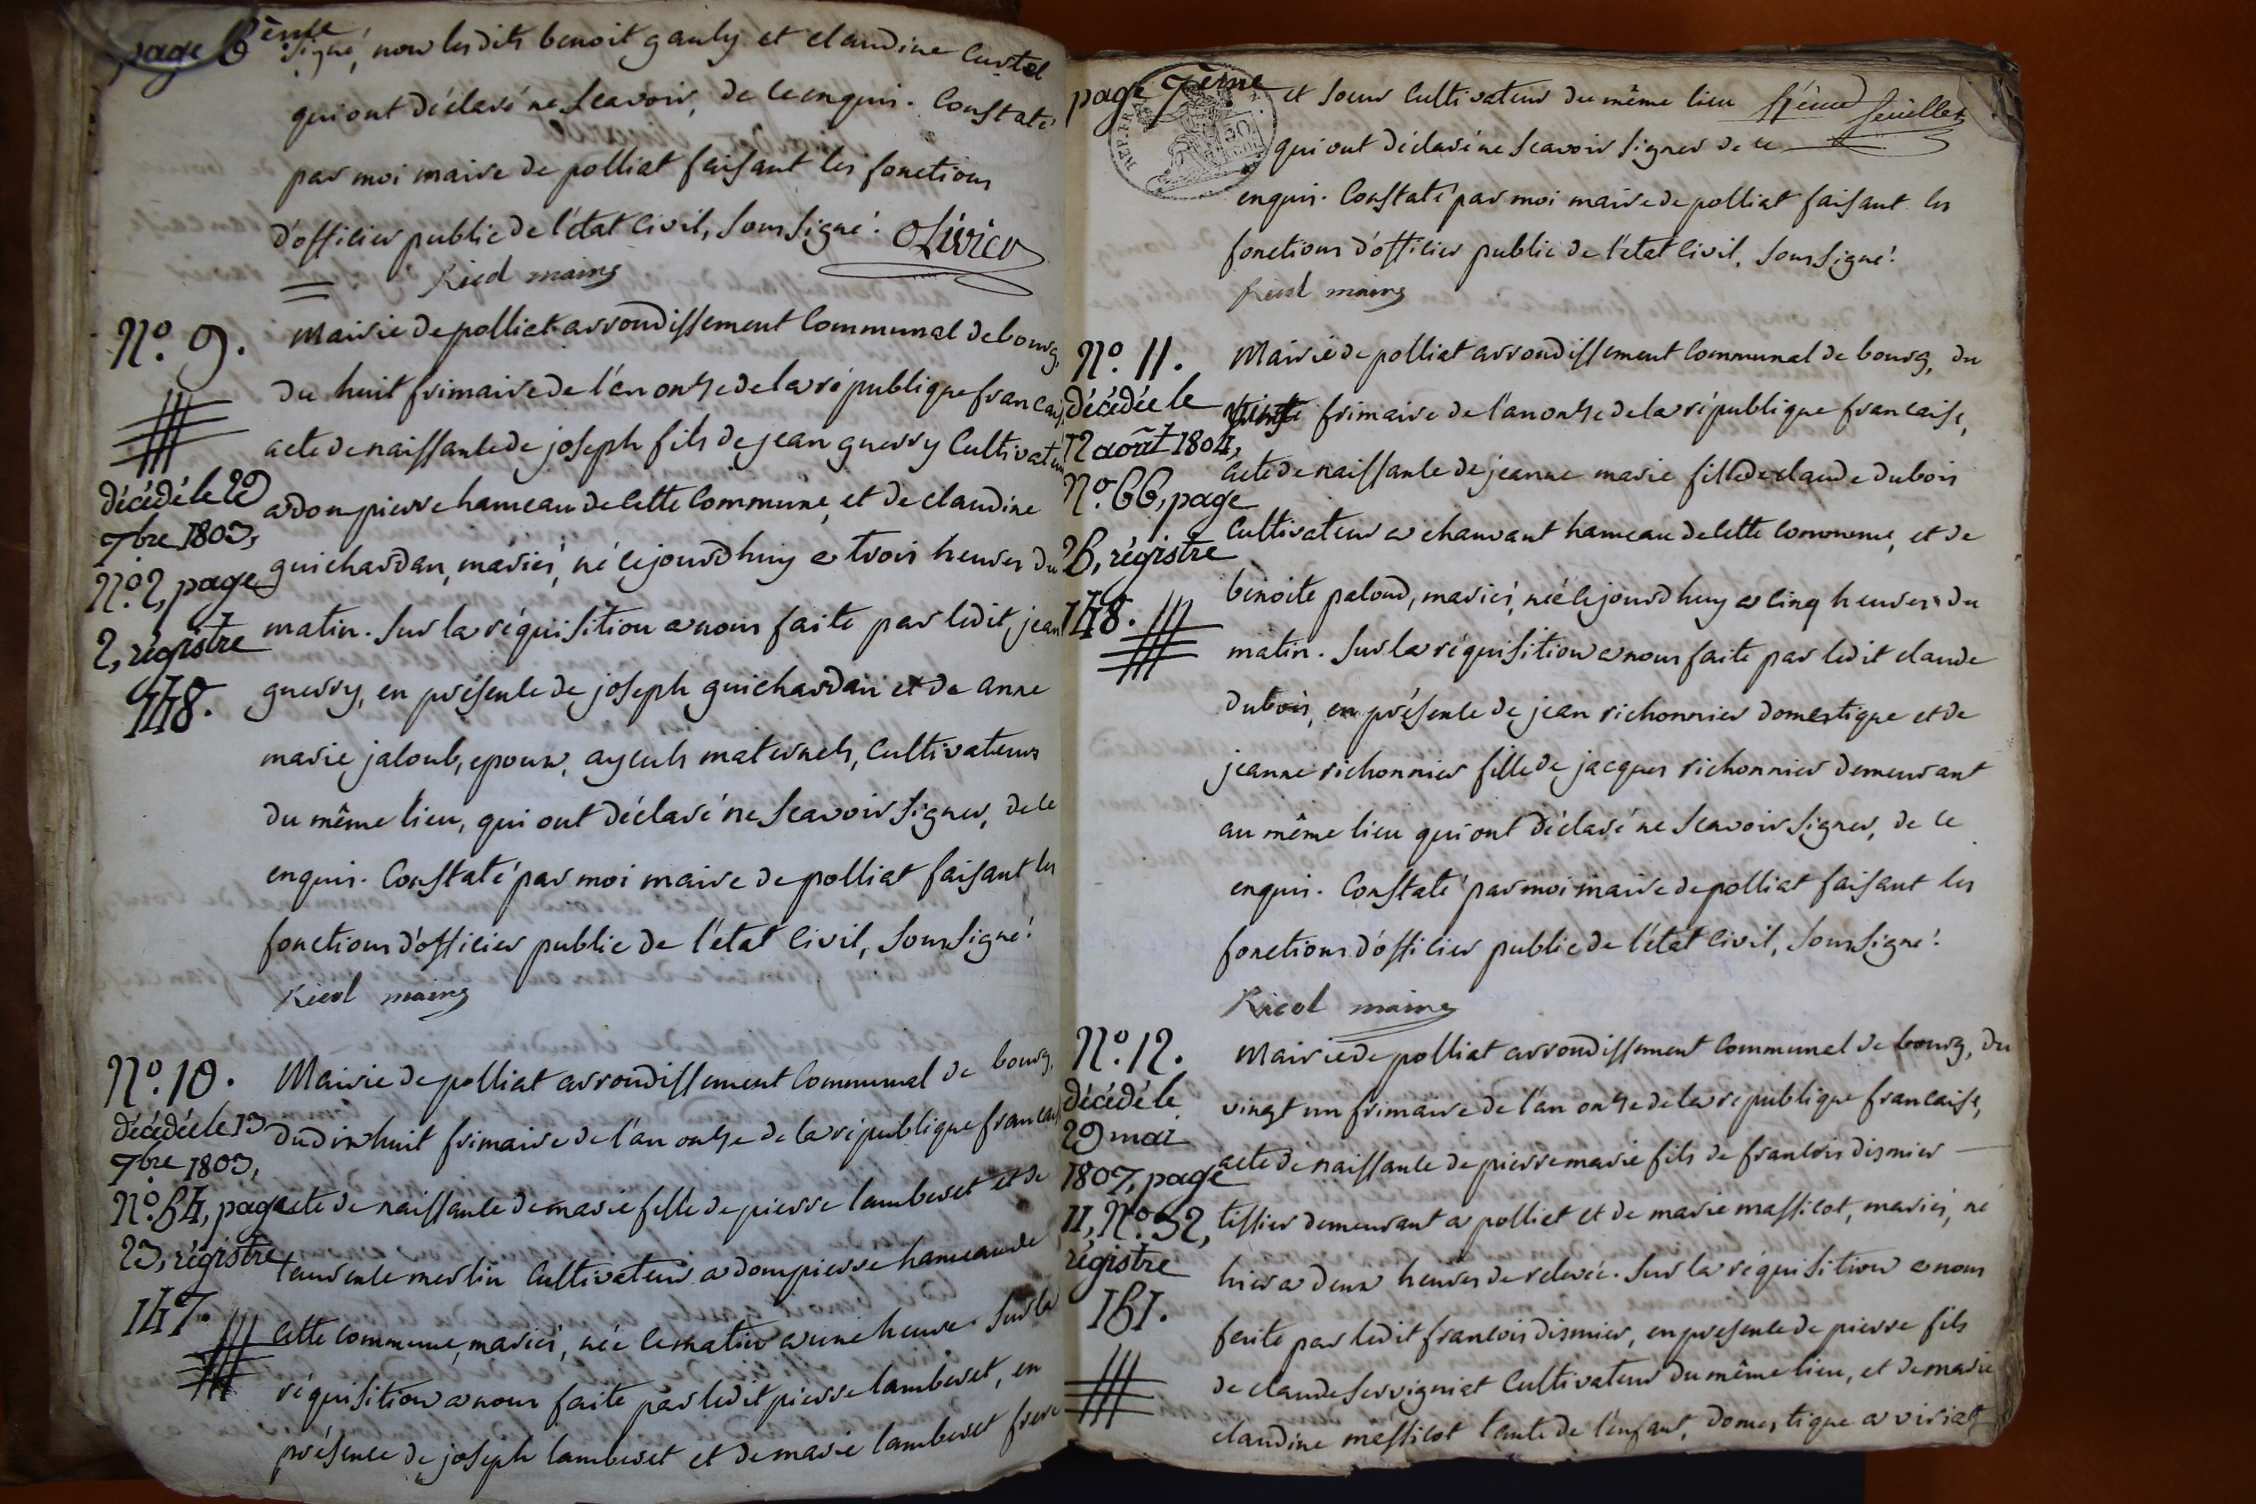 page 6ème
signé, non lesdits benoit gauly et claudine Curtel
qui ont déclaré ne scavoir, de ce enquis. Constaté
par moi maire de polliat faisant les fonctions
d'officier public de l'état Civil, soussigné. Olivier
Ricol maire
N.o 9. Mairie de polliat arrondissement Communal de bourg,
du huit frimaire de l'an onze de la république francaise
acte de naissance de joseph fils de jean guerry Cultivateur
décédé le 29 7bre 1803, N.o 2, page 2, régistre 148.
a dompierre hameau de cette Commune, et de claudine
guichardan, mariés, né cejourdhuy a trois heures du
matin. Sur la réquisition a nous faite par ledit jean
guerry, en présence de joseph guichardan et de anne
marie jaloub, epoux, ayeuls maternels, Cultivateurs
du même lieu, qui ont déclaré ne Scavoir Signer, de ce
enquis. Constaté par moi maire de polliat faisant les
fonctions d'officier public de l'état Civil, soussigné.
Ricol maire
N.o 10. Mairie de polliat arrondissement Communal de bourg,
décédée le 13 7bre 1803, N.o 64, page 23, régistre 147.
du dixhuit frimaire de l'an onze de la république francaise
acte de naissance de marie fille de pierre lamberet et de
laurence merlin Cultivateurs a dompierre hameau de
cette Commune, mariés, née ce matin a une heure. Sur la
réquisition a nous faite par ledit pierre lamberet, en
présence de joseph lamberet et de marie lamberet frere
page 7ème et soeur Cultivateurs du même lieu
feuillet
qui ont déclaré ne scavoir signer de ce
enquis. Constaté par moi maire de polliat faisant les
fonctions d'officier public de l'état Civil, soussigné.
Ricol maire
N.o 11. Mairie de polliat arrondissement Communal de bourg, du
décédée le 12 août 1804, N.o 66, page 26, régistre 148.
frimaire de l'an onze de la république francaise,
acte de naissance de jeanne marie fille de claude dubois
Cultivateur a chanvant hameau de cette Commune, et de
benoite paloud, mariés, née cejourdhuy a cinq heures du
matin. Sur la réquisition a nous faite par ledit claude
dubois, en présence de jean richonnier domestique et de
jeanne richonnier fille de jacques richonnier demeurant
au même lieu qui ont déclaré ne scavoir signer, de ce
enquis. Constaté par moi maire de polliat faisant les
fonctions d'officier public de l'état Civil, soussigné.
Ricol maire
N.o 12. Mairie de polliat arrondissement Communal de bourg, du
décédé le 29 mai 1807, page 11, N.o 52, régistre 151.
vingt un frimaire de l'an onze de la république francaise,
acte de naissance de pierre marie fils de francois dismier
tissier demeurant a polliat et de marie massicot, mariés, né
hier a deux heures de relevée. Sur la réquisition a nous
faite par ledit francois dismier, en presence de pierre fils
de claude servigniat Cultivateur du même lieu, et de marie
claudine massicot tante de l'enfant, domestique a viriat